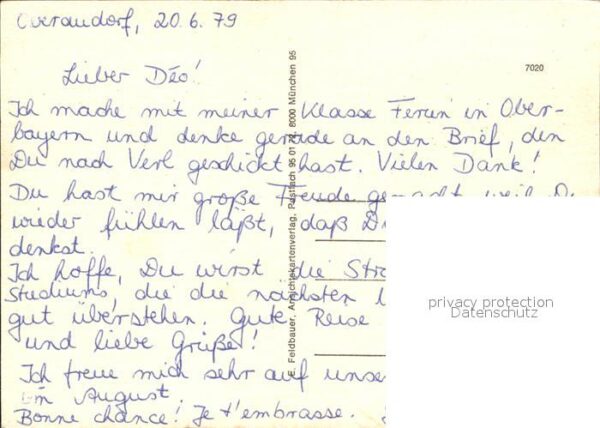 Oberaudorf, 20.6.79
7020
Lieber Déo!
Ich mache mit meiner Klasse Ferien in Ober-
bayern und denke gerade an den Brief, den
Du nach Verl geschickt hast. Vielen Dank!
Du hast mir große Freude gemacht, weil
wieder fühlen läßt, daß
denkst.
Ich hoffe, Du wirst die
Studiums, die die nächsten
gut überstehen. Gute Reise
und liebe Grüße!
Ich freue mich sehr auf
im August.
Bonne chance! Je t'embrasse.
E. Feldbauer, Ansichtskartenverlag, Postfach 95 01 72, 8000 München 95
privacy protection
Datenschutz